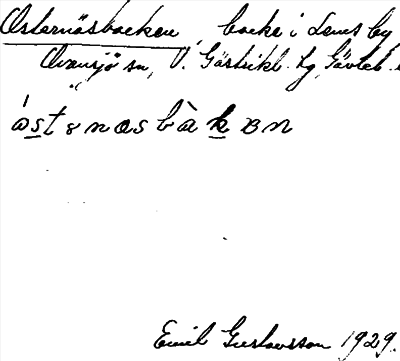 Osternäsbacken, backe i Lems by
Ovansjö sn, V. Gästrikl. hg, Gävleb.
ὠstɘnasbàkɘn
Emil Gustavsson 1929.